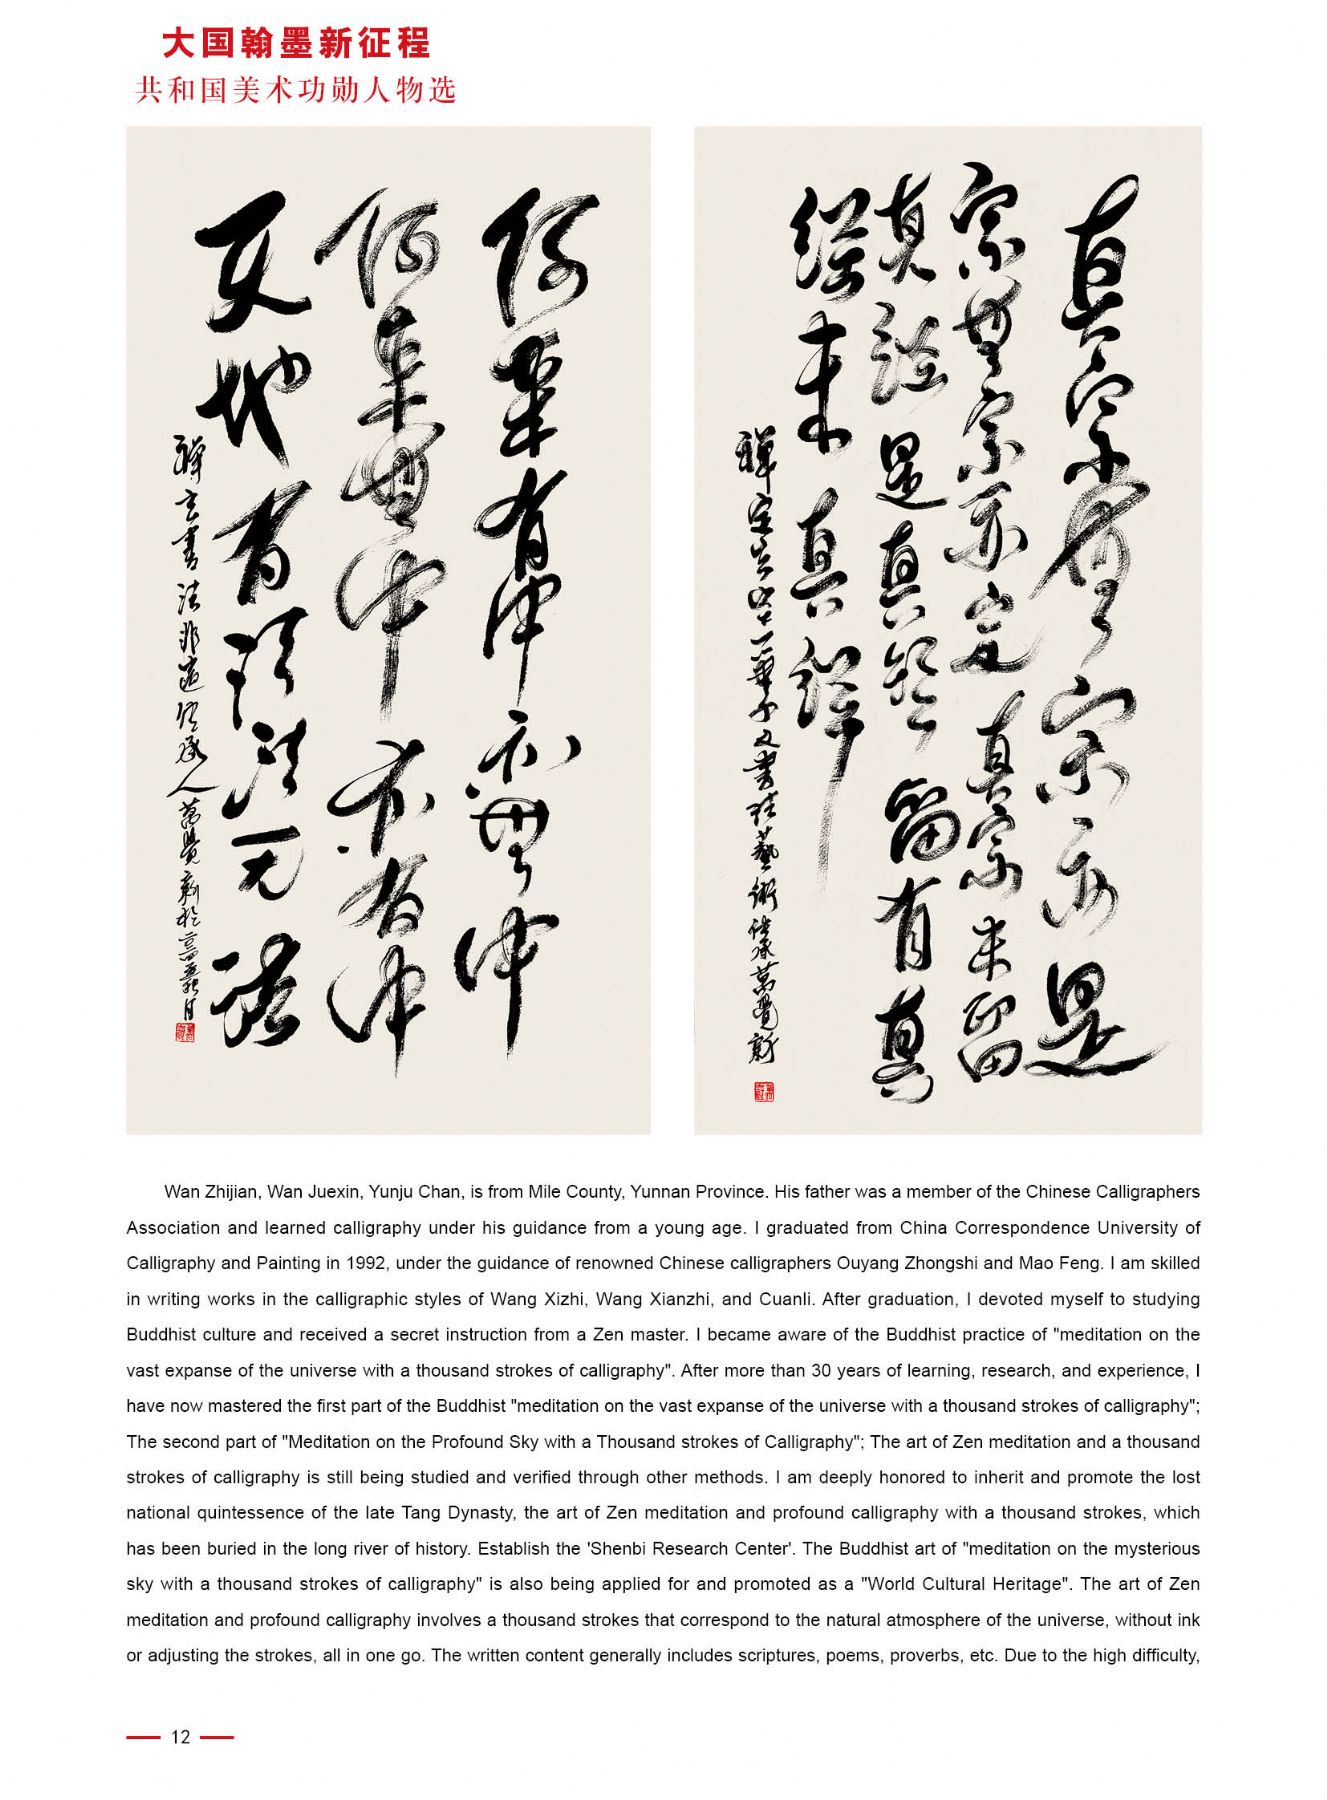 大国翰墨新征程
共和国美术功勋人物选
何来有中不無中
何来無中亦有中
天地有法法无法
真宗無宗亦是
宗無宗亦定真宗未留
真经是真经留有真
经未真经
Wan Zhijian, Wan Juexin, Yunju Chan, is from Mile County, Yunnan Province. His father was a member of the Chinese Calligraphers
Association and learned calligraphy under his guidance from a young age. I graduated from China Correspondence University of
Calligraphy and Painting in 1992, under the guidance of renowned Chinese calligraphers Ouyang Zhongshi and Mao Feng. I am skilled
in writing works in the calligraphic styles of Wang Xizhi, Wang Xianzhi, and Cuanli. After graduation, I devoted myself to studying
Buddhist culture and received a secret instruction from a Zen master. I became aware of the Buddhist practice of "meditation on the
vast expanse of the universe with a thousand strokes of calligraphy". After more than 30 years of learning, research, and experience, I
have now mastered the first part of the Buddhist "meditation on the vast expanse of the universe with a thousand strokes of calligraphy";
The second part of "Meditation on the Profound Sky with a Thousand strokes of Calligraphy"; The art of Zen meditation and a thousand
strokes of calligraphy is still being studied and verified through other methods. I am deeply honored to inherit and promote the lost
national quintessence of the late Tang Dynasty, the art of Zen meditation and profound calligraphy with a thousand strokes, which
has been buried in the long river of history. Establish the 'Shenbi Research Center'. The Buddhist art of "meditation on the mysterious
sky with a thousand strokes of calligraphy" is also being applied for and promoted as a "World Cultural Heritage". The art of Zen
meditation and profound calligraphy involves a thousand strokes that correspond to the natural atmosphere of the universe, without ink
or adjusting the strokes, all in one go. The written content generally includes scriptures, poems, proverbs, etc. Due to the high difficulty,
12